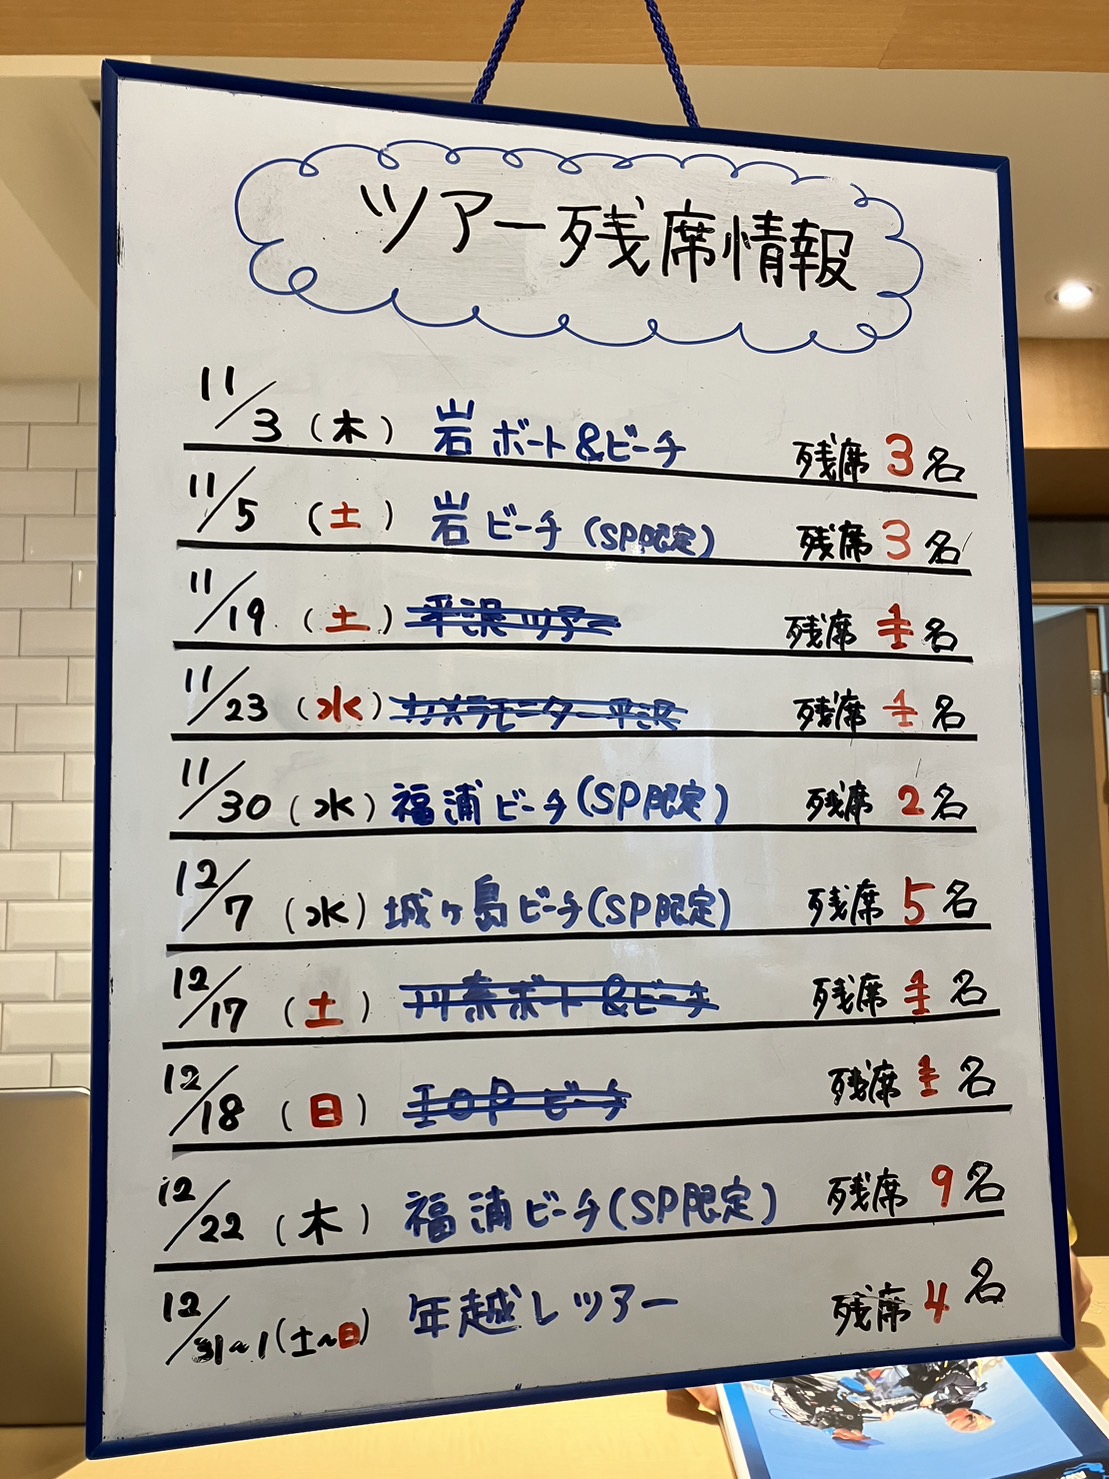 ツアー残席情報
11/3 (木) 岩ボート&ビーチ 残席 3名
11/5 (土) 岩ビーチ (SP限定) 残席 3名
11/19 (土) 平沢ツアー 残席 1名
11/23 (水) カメラモニター平沢 残席 1名
11/30 (水) 福浦ビーチ (SP限定) 残席 2名
12/7 (水) 城ヶ島ビーチ (SP限定) 残席 5名
12/17 (土) 川奈ボート&ビーチ 残席 1名
12/18 (日) IOPビーチ 残席 1名
12/22 (木) 福浦ビーチ (SP限定) 残席 9名
12/31~1 (土~日) 年越しツアー 残席 4名